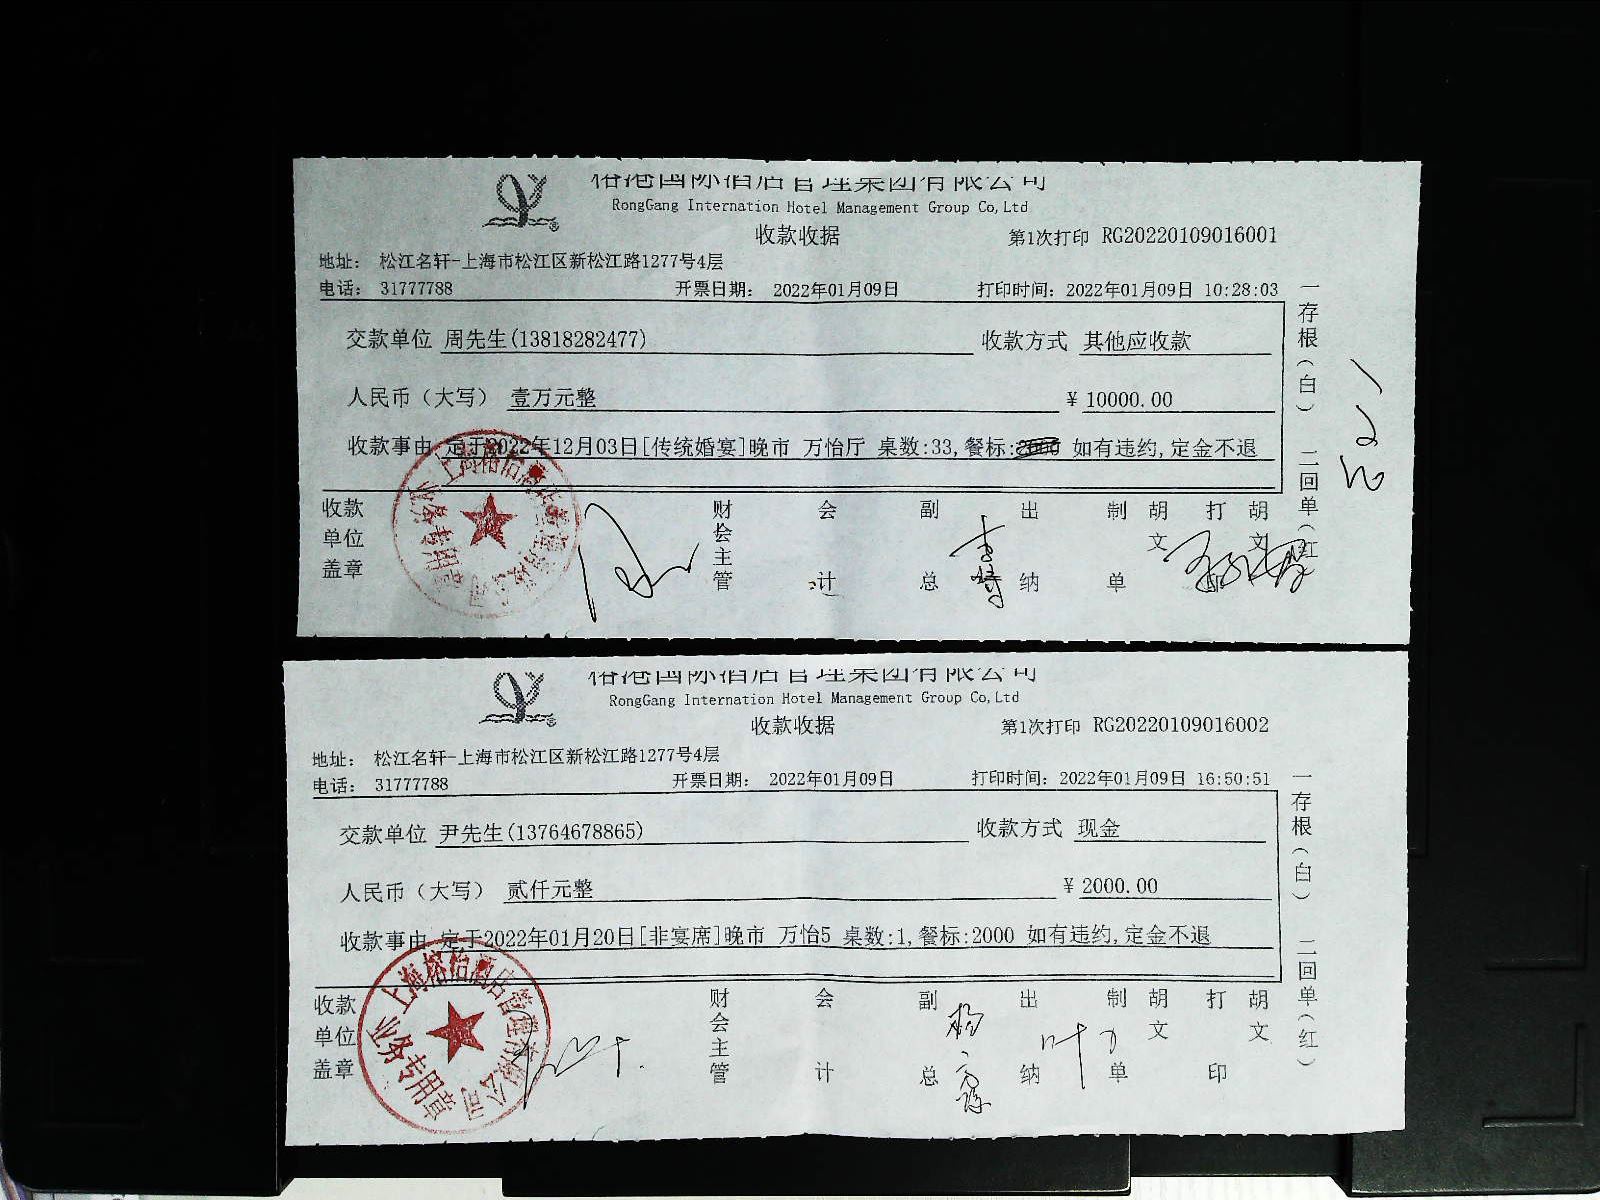 榕港国际酒店管理集团有限公司
RongGang Internation Hotel Management Group Co,Ltd
收款收据
第1次打印 RG20220109016001
地址: 松江名轩-上海市松江区新松江路1277号4层
电话: 31777788 开票日期: 2022年01月09日 打印时间: 2022年01月09日 10:28:03
交款单位 周先生(13818282477) 收款方式 其他应收款
人民币（大写） 壹万元整 ¥ 10000.00
收款事由 定于2022年12月03日[传统婚宴]晚市 万怡厅 桌数:33,餐标:2000 如有违约,定金不退
收款单位盖章 财会主管 会计 副总 出纳 制单 胡文 打印 胡文
一存根（白） 二回单（红
业务专用章
榕港国际酒店管理集团有限公司
RongGang Internation Hotel Management Group Co,Ltd
收款收据
第1次打印 RG20220109016002
地址: 松江名轩-上海市松江区新松江路1277号4层
电话: 31777788 开票日期: 2022年01月09日 打印时间: 2022年01月09日 16:50:51
交款单位 尹先生(13764678865) 收款方式 现金
人民币（大写） 贰仟元整 ¥ 2000.00
收款事由 定于2022年01月20日[非宴席]晚市 万怡5 桌数:1,餐标:2000 如有违约,定金不退
收款单位盖章 财会主管 会计 副总 出纳 制单 胡文 打印 胡文
一存根（白） 二回单（红）
上海榕怡酒店管理有限公司
业务专用章